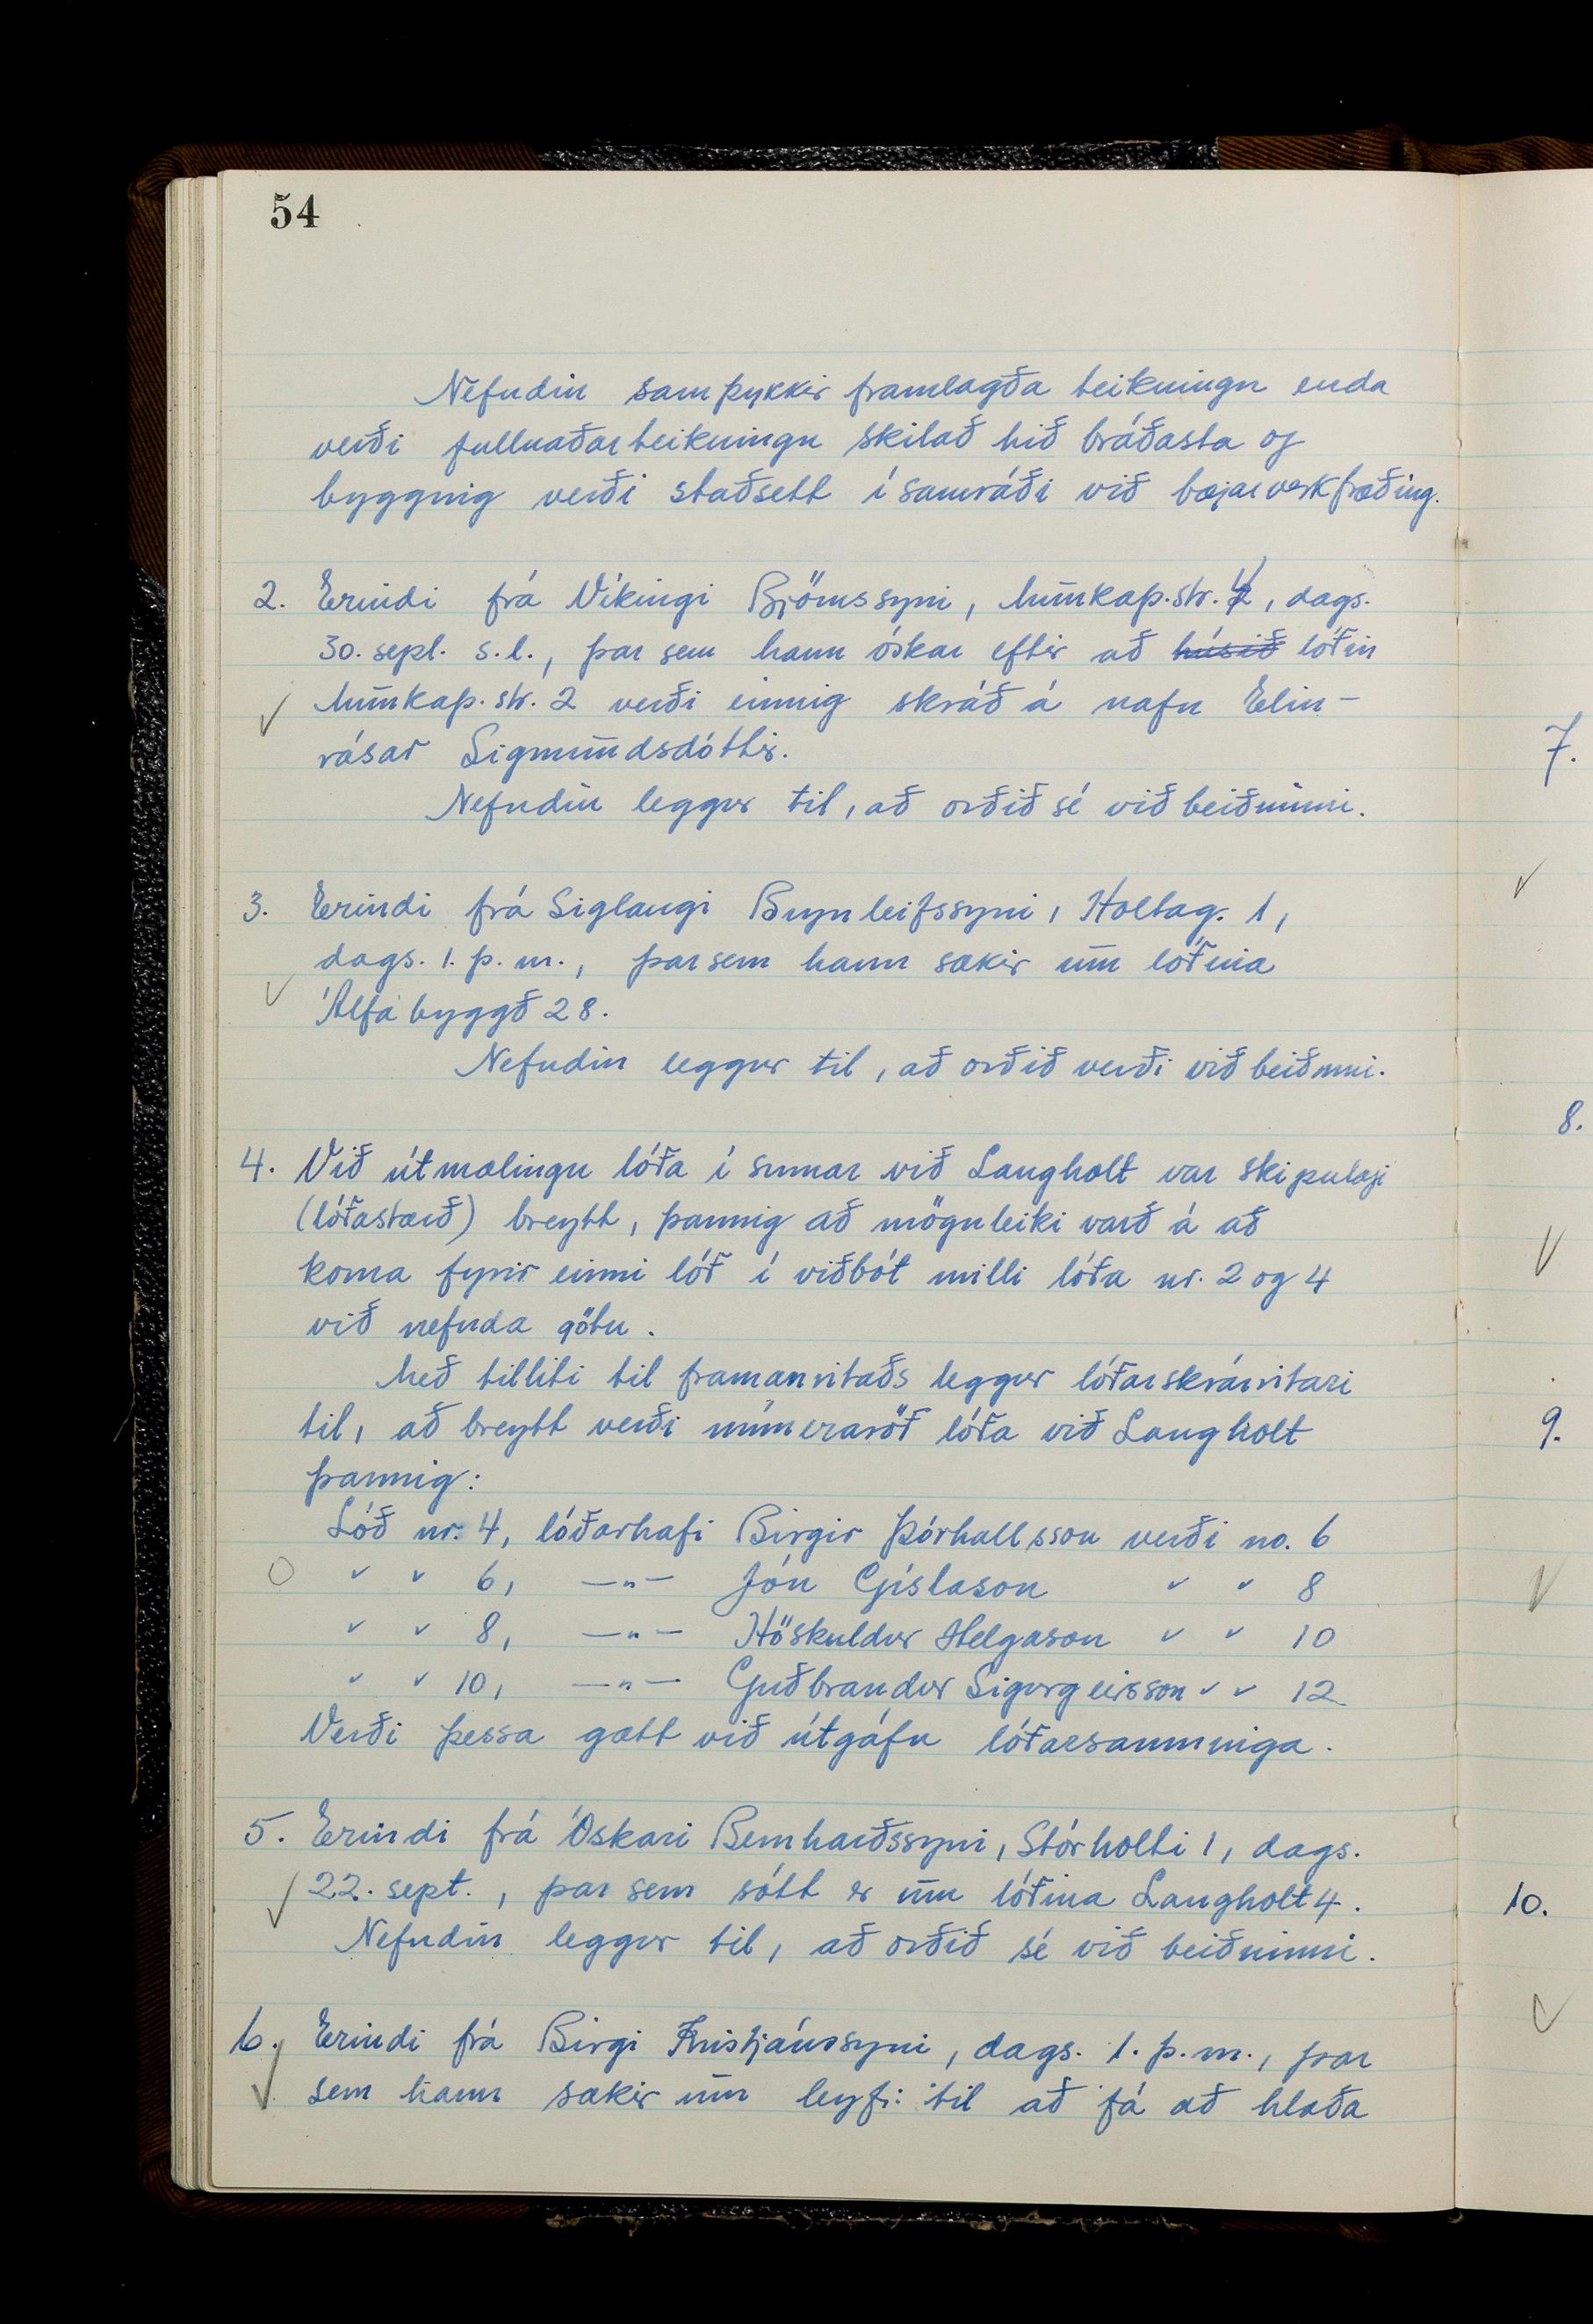 54
Nefndin samþykkir framlagða teikningu enda
verði fullnaðarteikningu skilað hið bráðasta og
bygging verði staðsett í samráði við bæjarverkfræðing.
2. Erindi frá Víkingi Björnssyni, Munkaþ.str. 2, dags.
30. sept. s.l., þar sem hann óskar eftir að húsið lóðin
Munkaþ.str. 2 verði einnig skráð á nafn Elin-
rósar Sigmundsdóttir.
Nefndin leggur til, að orðið sé við beiðninni.
3. Erindi frá Siglaugi Brynleifssyni, Holtag. 1,
dags. 1. þ.m., þar sem hann sækir um lóðina
Álfabyggð 28.
Nefndin leggur til, að orðið verði við beiðnni.
4. Við útmælingu lóða í sumar við Langholt var skipulagi
(lóðastærð) breytt, þannig að möguleiki varð á að
koma fyrir einni lóð í viðbót milli lóða nr. 2 og 4
við nefnda götu.
Með tilliti til framanritaðs leggur lóðarskrárritari
til, að breytt verði númeraröð lóða við Langholt
þannig:
Lóð nr. 4, lóðarhafi Birgir Þórhallsson verði no. 6
" " 6, —"— Jón Gíslason " " 8
" " 8, —"— Höskuldur Helgason " " 10
" " 10, —"— Guðbrandur Sigurgeirsson " " 12
Verði þessa gætt við útgáfu lóðarsamninga.
5. Erindi frá Óskari Bernharðssyni, Stórholti 1, dags.
22. sept., þar sem sótt er um lóðina Langholt 4.
Nefndin leggur til, að orðið sé við beiðninni.
6. Erindi frá Birgi Kristjánssyni, dags. 1. þ.m., þar
sem hann sækir um leyfi til að fá að hlaða
7.
8.
9.
10.